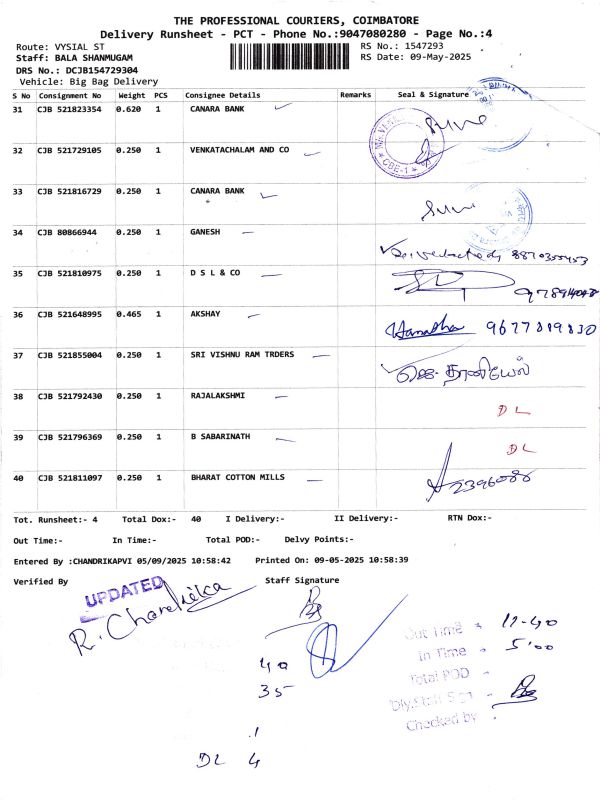 THE PROFESSIONAL COURIERS, COIMBATORE
Delivery Runsheet - PCT - Phone No.:9047080280 - Page No.:4
Route: VYSIAL ST RS No.: 1547293
Staff: BALA SHANMUGAM RS Date: 09-May-2025
DRS No.: DCJB154729304
Vehicle: Big Bag Delivery
S No Consignment No Weight PCS Consignee Details Remarks Seal & Signature
31 CJB 521823354 0.620 1 CANARA BANK
32 CJB 521729105 0.250 1 VENKATACHALAM AND CO
CBE-1
33 CJB 521816729 0.250 1 CANARA BANK
34 CJB 80866944 0.250 1 GANESH
35 CJB 521810975 0.250 1 D S L & CO
36 CJB 521648995 0.465 1 AKSHAY 9677819830
37 CJB 521855004 0.250 1 SRI VISHNU RAM TRDERS
38 CJB 521792430 0.250 1 RAJALAKSHMI DL
39 CJB 521796369 0.250 1 B SABARINATH DL
40 CJB 521811097 0.250 1 BHARAT COTTON MILLS
Tot. Runsheet:- 4 Total Dox:- 40 I Delivery:- II Delivery:- RTN Dox:-
Out Time:- In Time:- Total POD:- Delvy Points:-
Entered By :CHANDRIKAPVI 05/09/2025 10:58:42 Printed On: 09-05-2025 10:58:39
Verified By Staff Signature
UPDATED
R. Chandrika
Out Time - 11-40
In Time - 5:00
40
Total POD -
35
Dly.Staff Sign -
Checked by
DL 4